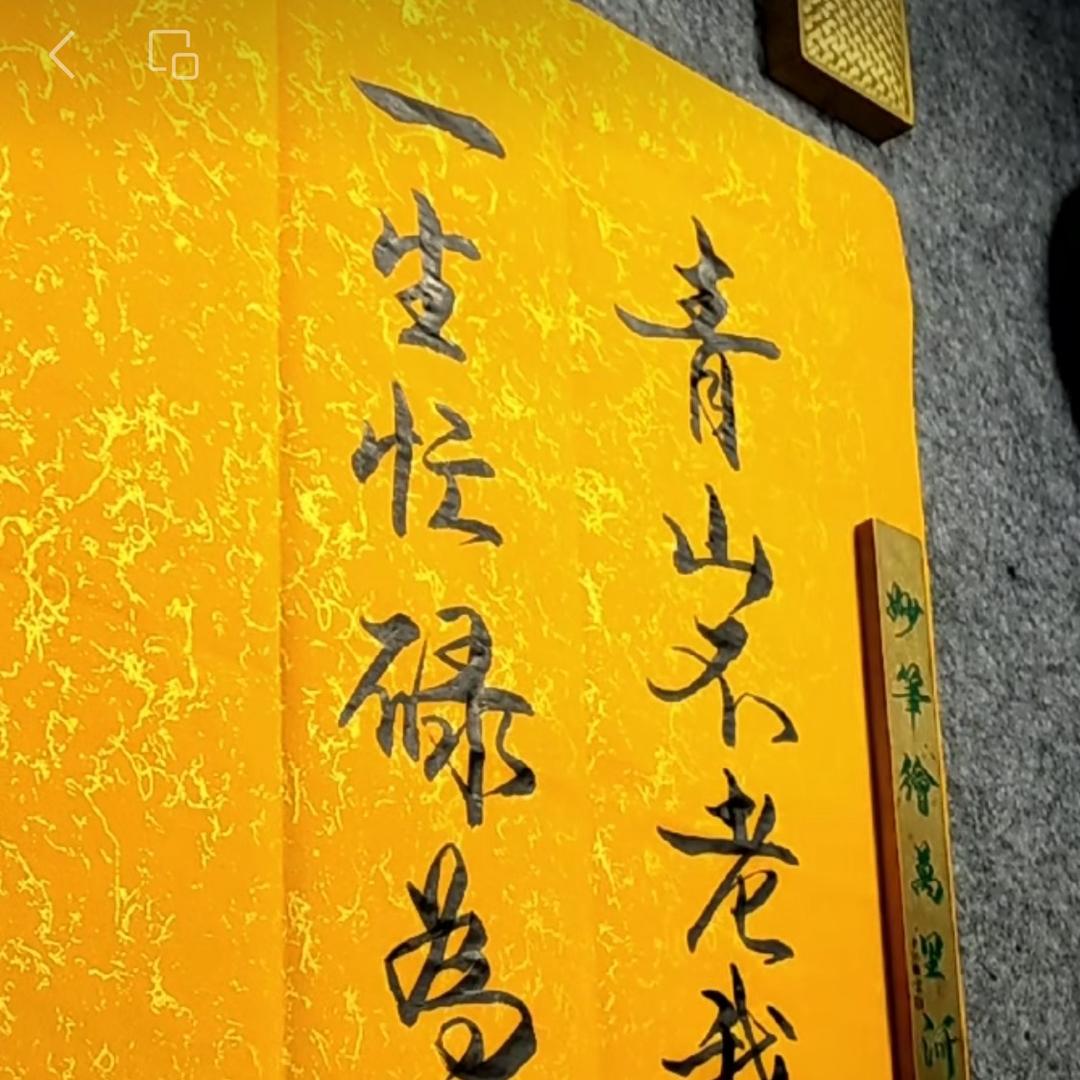 青山不老我
一生忙碌為
妙筆繪萬里河